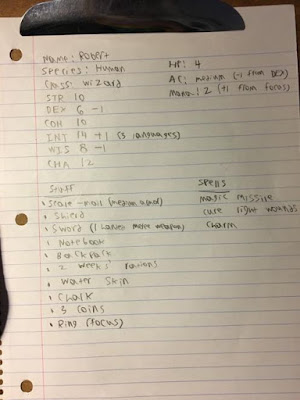 Name: Robert
Species: Human
Class: Wizard
STR 10
DEX 6 -1
CON 10
INT 14 +1 (3 languages)
WIS 8 -1
CHA 12
HP: 4
AC: medium (-1 from DEX)
Mana: 2 (+1 from focus)
Stuff
• Scale-mail (medium armor)
• Shield
• Sword (1 handed melee weapon)
• Notebook
• Backpack
• 2 weeks' rations
• Water skin
• Chalk
• 3 coins
• Ring (focus)
Spells
magic missile
cure light wounds
charm